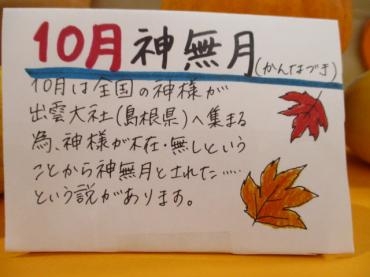 10月神無月(かんなづき)
10月は全国の神様が
出雲大社(島根県)へ集まる
為、神様が不在・無しという
ことから神無月とされた……
という説があります。